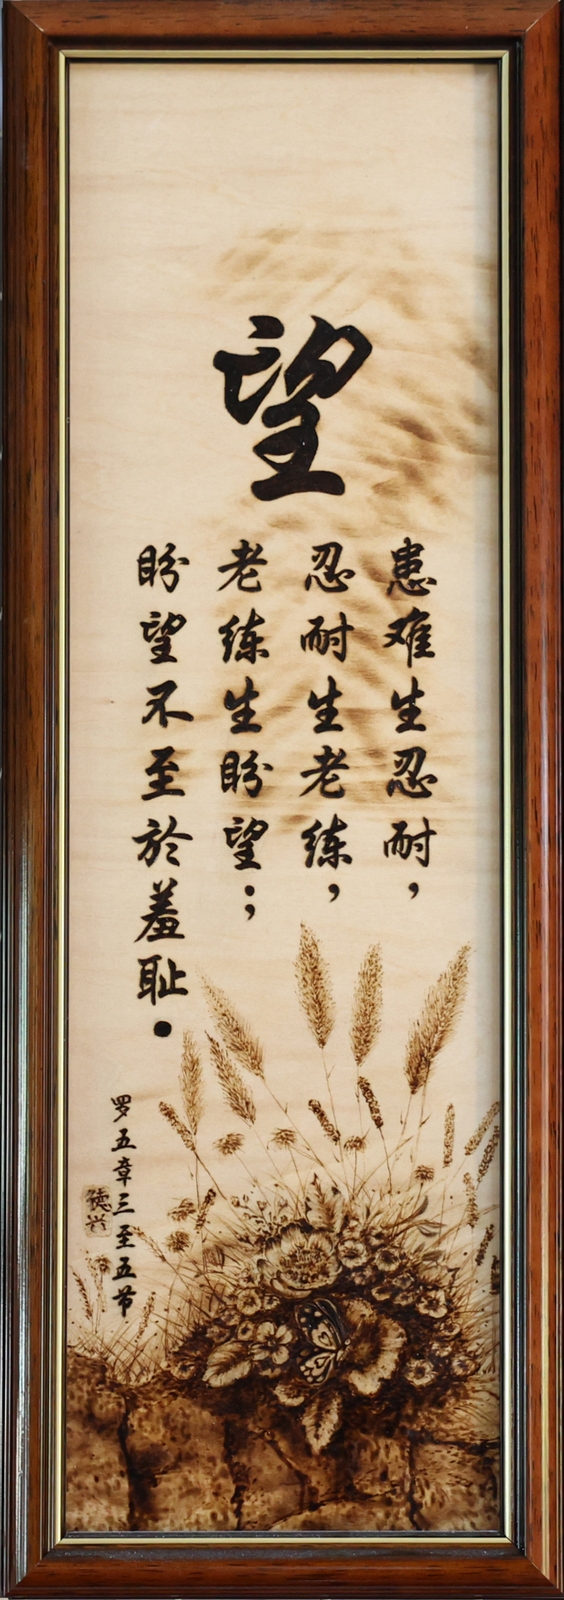 望
患难生忍耐，
忍耐生老练，
老练生盼望；
盼望不至於羞耻。
罗五章三至五节
德兴